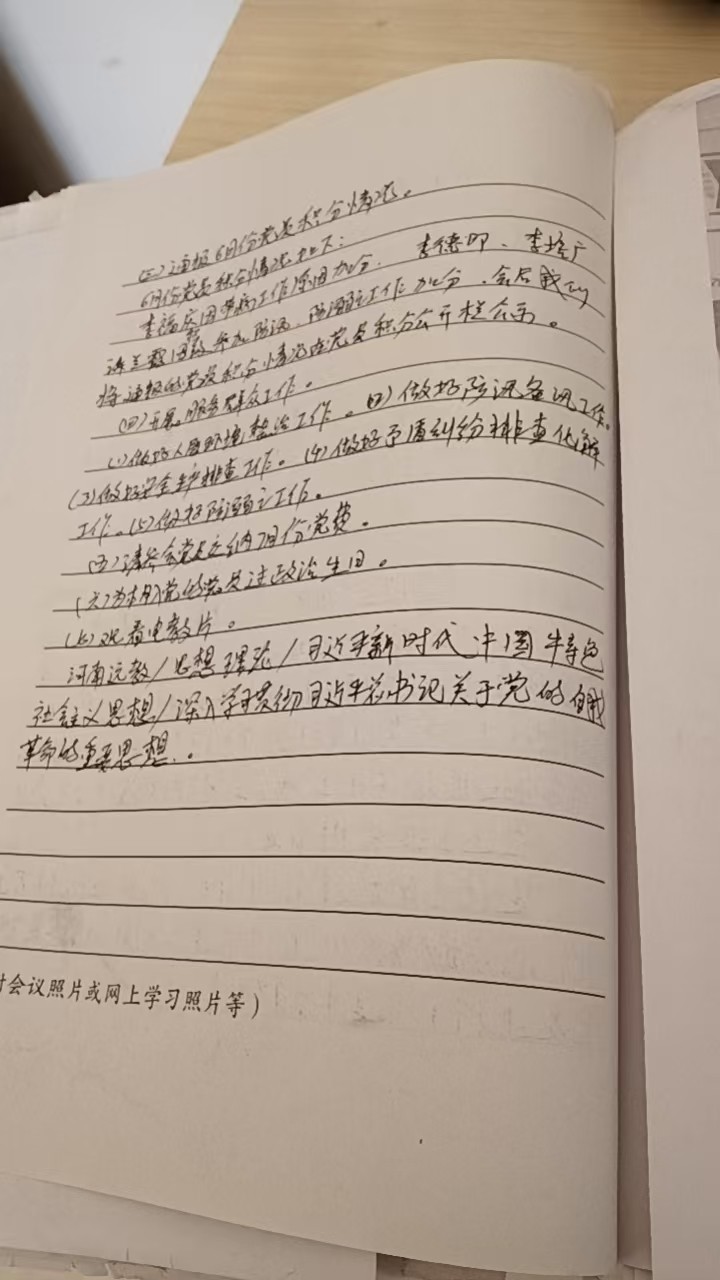 (三)通报6月份党员积分情况。
6月份党员积分情况如下: 李德 、李培广
李福 因 工作原因加分.
数因 参加防汛、防溺亡工作加分,会后我们
将通报的党员积分情况在党员积分公开栏公示。
(四)开展服务群众工作。
(1)做好人居环境整治工作。 做好防汛备汛工作。
(3)做好安全生产排查工作。(4)做好矛盾纠纷排查化解
工作。(5)做好防溺亡工作。
(五)请各位党员交纳7月份党费。
(六)为本月入党的党员过政治生日。
(七)观看电教片。
河南远教/思想理论/习近平新时代中国特色
社会主义思想/深入学习贯彻习近平总书记关于党的自我
革命的重要思想.。
会议照片或网上学习照片等)